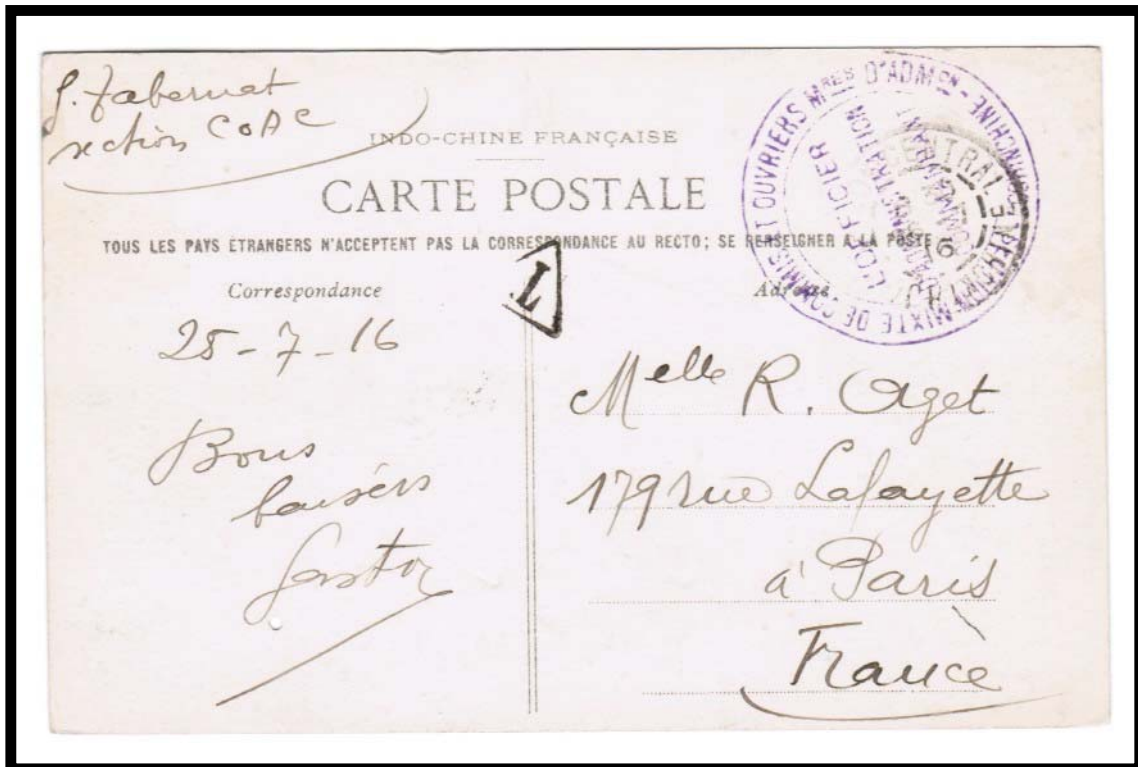 G. Tabernat
section COAC
INDO-CHINE FRANÇAISE
CARTE POSTALE
TOUS LES PAYS ÉTRANGERS N'ACCEPTENT PAS LA CORRESPONDANCE AU RECTO; SE RENSEIGNER A LA POSTE
Correspondance
Adresse
MIXTE DE COMMIS ET OUVRIERS MRES D'ADMON
L'OFFICIER
D'ADMINISTRATION
COMMANDANT
CENTRAL
16
L
25-7-16
Bons
baisers
Gaston
Melle R. Aget
179 rue Lafayette
à Paris
France